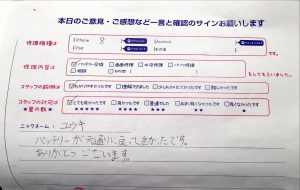 本日のご意見・ご感想など一言と確認のサインお願いします
修理機種は
iPhone
iPad
Android
修理内容は ☑バッテリー交換 □画面修理 □水没修理 □パーツ修理
をしてもらいました。
スタッフの説明は ☑わかりやすかったです □理解できました □少しわかりにくかったです □難しかったです
スタッフの対応は ☑とても良かったです □良かったです □普通でした
★星の数★ ★★★★★ ★★★★ ★★★ ★★ ★
ニックネーム: ユウキ
バッテリーが元通りに戻って良かったです。
ありがとうございます。